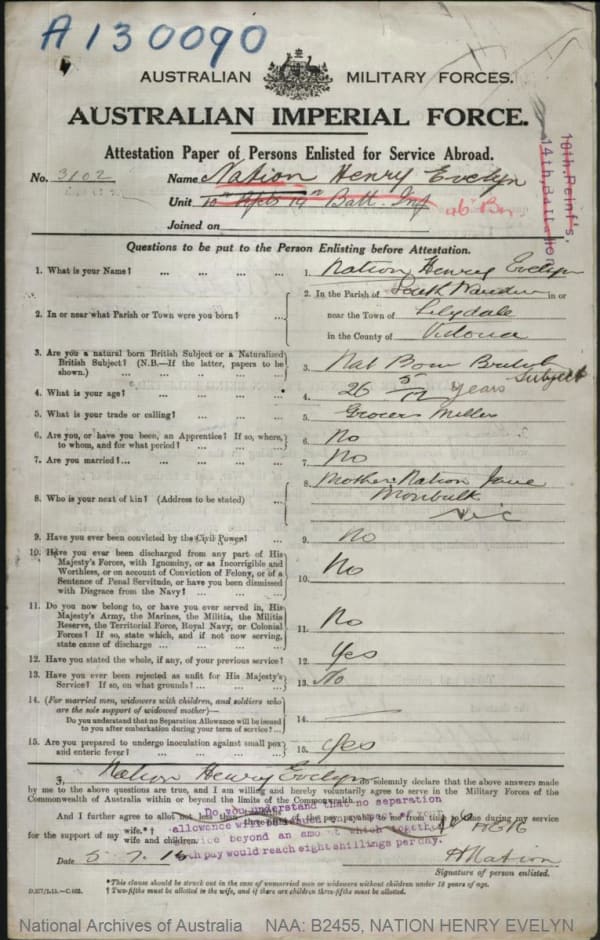 A130090
AUSTRALIAN MILITARY FORCES.
AUSTRALIAN IMPERIAL FORCE.
Attestation Paper of Persons Enlisted for Service Abroad.
10th Reinf's,
14th Battalion
No. 3102 Name Nation Henry Evelyn
Unit 10th Rfts 14th Batt. Inf 46 Bn
Joined on
Questions to be put to the Person Enlisting before Attestation.
1. What is your Name? ... ... ... ... 1. Nation Henry Evelyn
2. In or near what Parish or Town were you born? ... 2. In the Parish of South Wandin in or
near the Town of Lilydale
in the County of Victoria
3. Are you a natural born British Subject or a Naturalized
British Subject? (N.B.—If the latter, papers to be
shown.) ... ... ... ... 3. Nat Born British Subject
4. What is your age? ... ... ... ... 4. 26 5/12 years
5. What is your trade or calling? ... ... ... 5. Grocer Miller
6. Are you, or have you been, an Apprentice? If so, where,
to whom, and for what period? ... ... ... 6. No
7. Are you married? ... ... ... ... 7. No
8. Who is your next of kin? (Address to be stated) ... 8. Mother: Nation Jane
Monbulk
Vic
9. Have you ever been convicted by the Civil Power? ... 9. No
10. Have you ever been discharged from any part of His
Majesty's Forces, with Ignominy, or as Incorrigible and
Worthless, or on account of Conviction of Felony, or of a
Sentence of Penal Servitude, or have you been dismissed
with Disgrace from the Navy? ... ... ... 10. No
11. Do you now belong to, or have you ever served in, His
Majesty's Army, the Marines, the Militia, the Militia
Reserve, the Territorial Force, Royal Navy, or Colonial
Forces? If so, state which, and if not now serving,
state cause of discharge ... ... ... ... 11. No
12. Have you stated the whole, if any, of your previous service? 12. Yes
13. Have you ever been rejected as unfit for His Majesty's
Service? If so, on what grounds? ... ... ... 13. No
14. (For married men, widowers with children, and soldiers who
are the sole support of widowed mother)—
Do you understand that no Separation Allowance will be issued
to you after embarkation during your term of service? ... 14.
15. Are you prepared to undergo inoculation against small pox
and enteric fever? ... ... ... ... 15. Yes
I, Nation Henry Evelyn do solemnly declare that the above answers made
by me to the above questions are true, and I am willing and hereby voluntarily agree to serve in the Military Forces of the
Commonwealth of Australia within or beyond the limits of the Commonwealth.
And I further agree to allot not less than of the pay payable to me from time to time during my service
for the support of my wife.*†
wife and children.
Do you understand that no separation
allowance will be issued
service beyond an amount which together
with pay would reach eight shillings per day.
Date 5.7.15 H Nation
Signature of person enlisted.
*This clause should be struck out in the case of unmarried men or widowers without children under 18 years of age.
† Two-fifths must be allotted to the wife, and if there are children three-fifths must be allotted.
National Archives of Australia NAA: B2455, NATION HENRY EVELYN